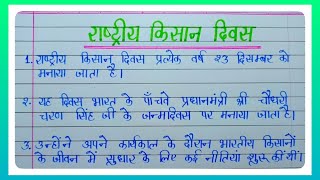 राष्ट्रीय किसान दिवस
1. राष्ट्रीय किसान दिवस प्रत्येक वर्ष 23 दिसम्बर को
मनाया जाता है।
2. यह दिवस भारत के पाँचवे प्रधानमंत्री श्री चौधरी
चरण सिंह जी के जन्मदिवस पर मनाया जाता है।
3. उन्होंने अपने कार्यकाल के दौरान भारतीय किसानों
के जीवन में सुधार के लिए कई नीतियां शुरू की थीं।